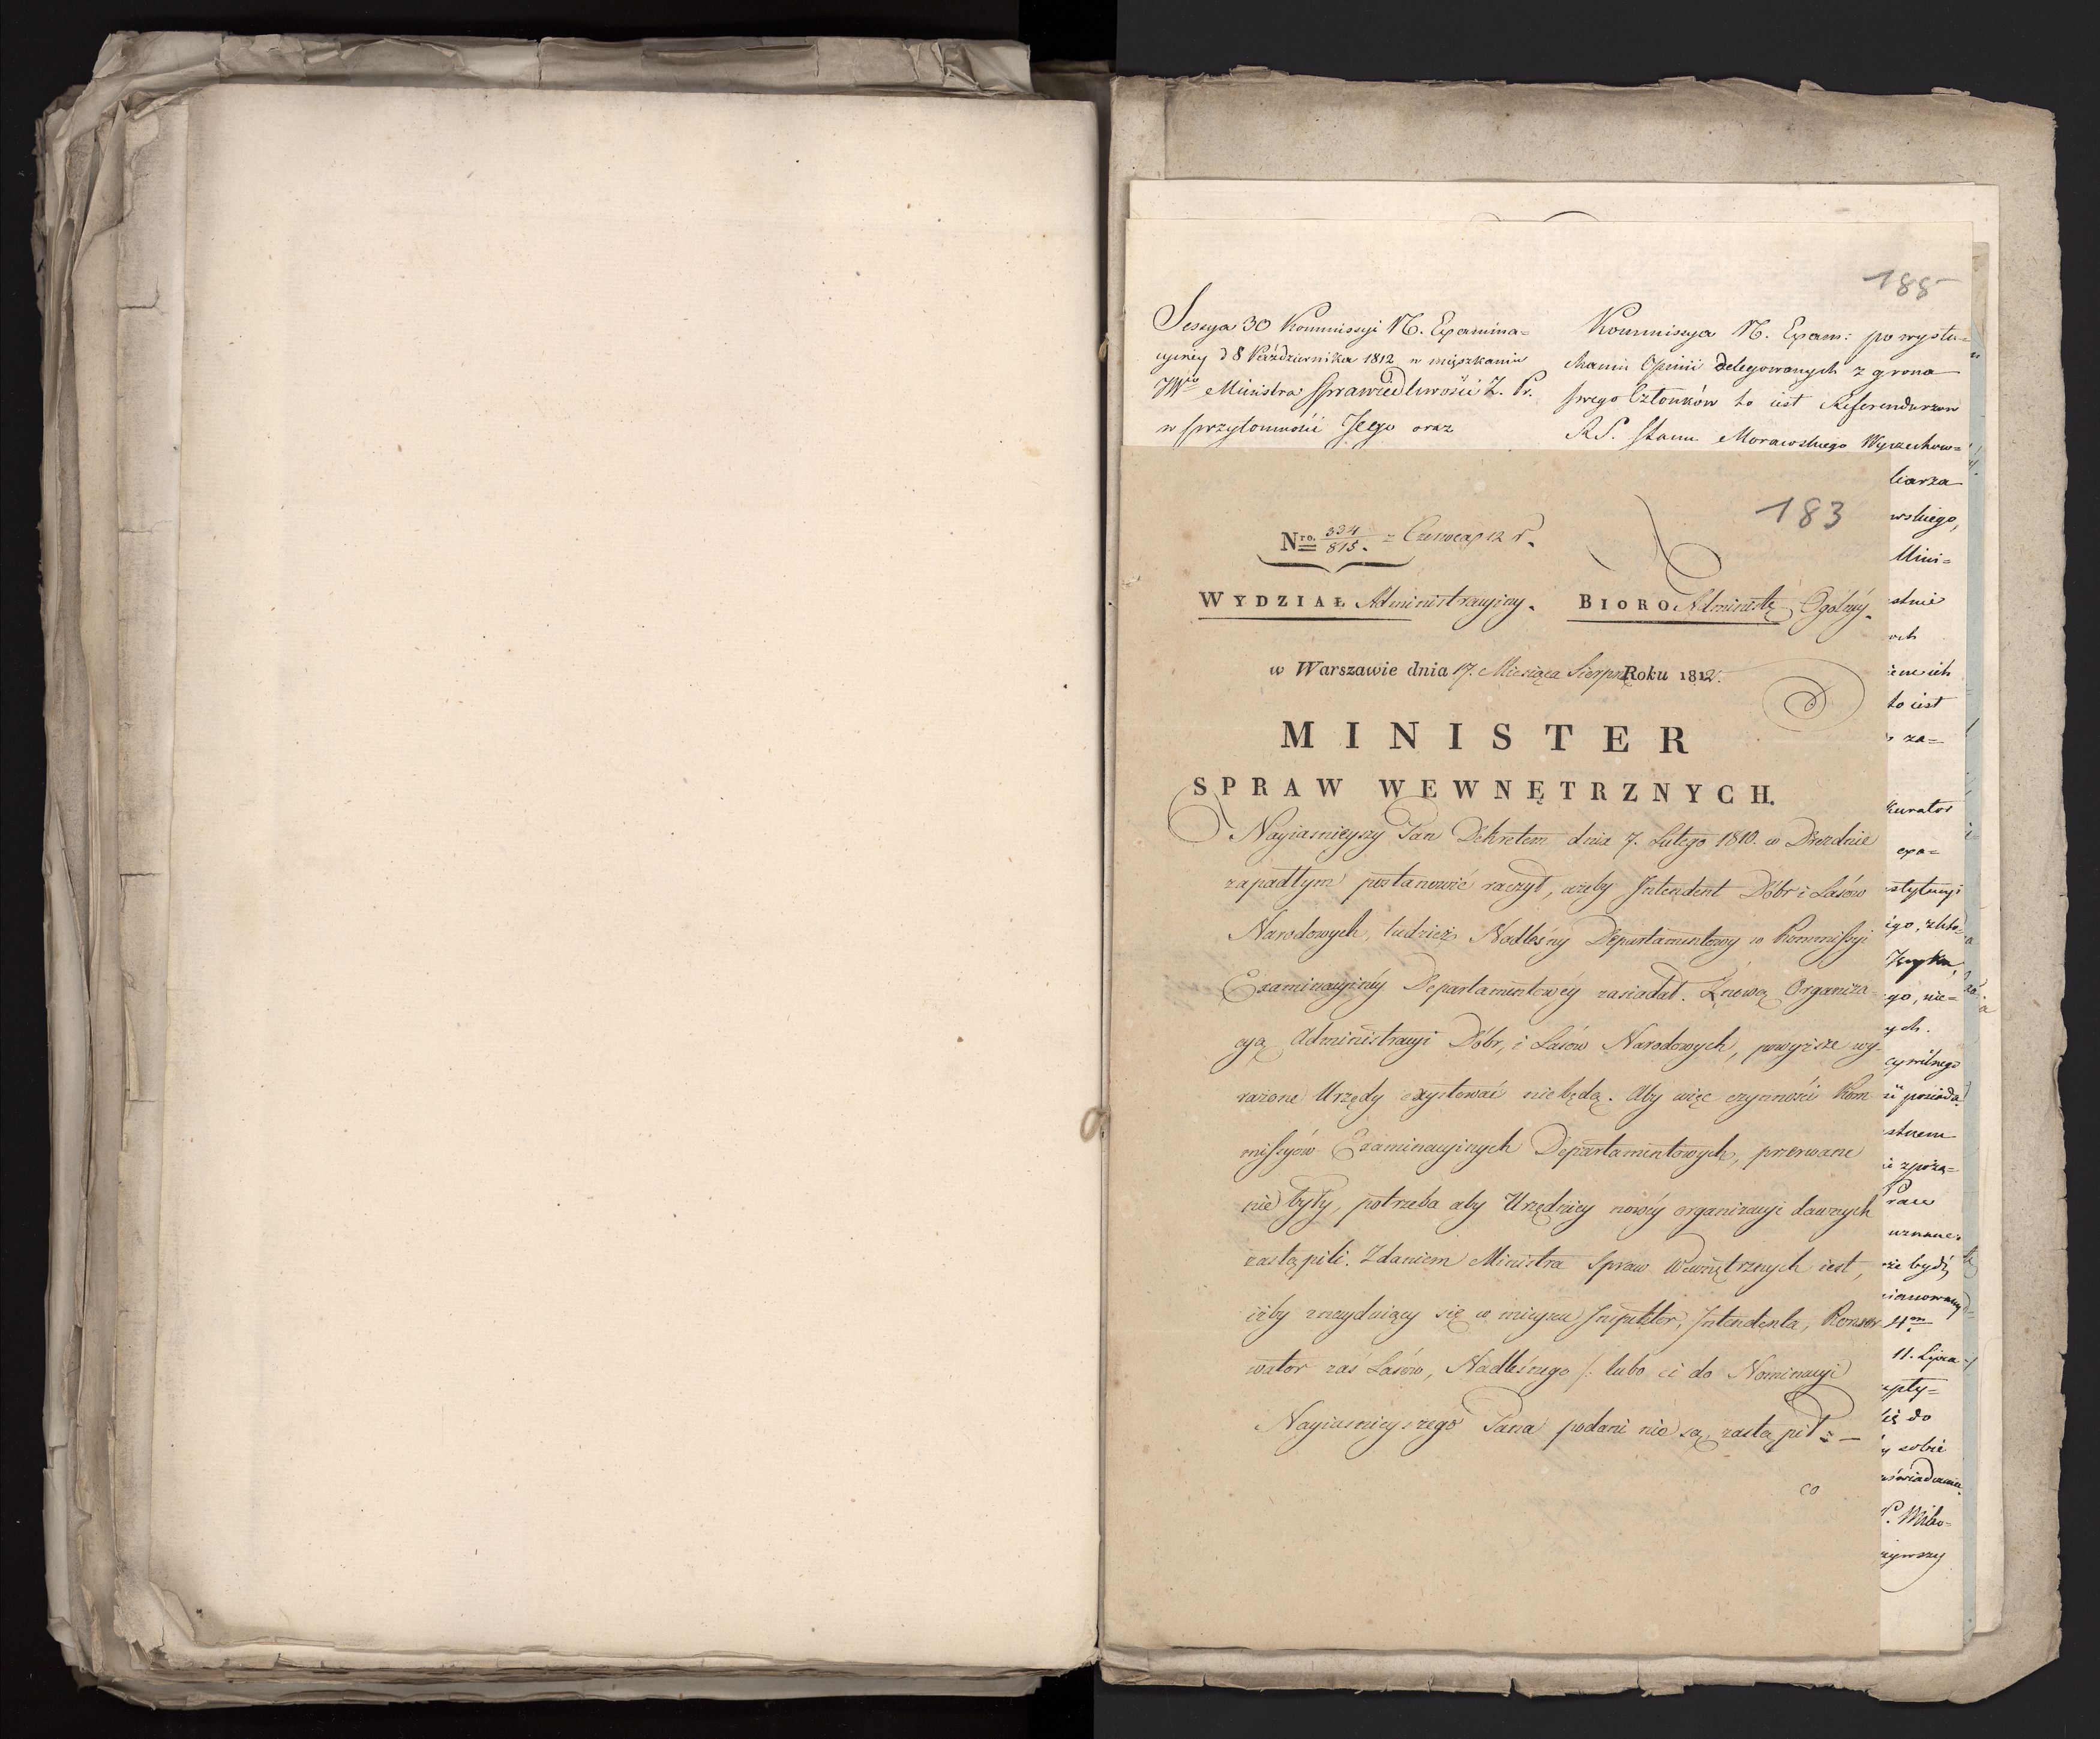 185
Sessya 30 Kommissyi N. Examina=
cyiney d 8 Października 1812 w mięszkaniu
JWgo Ministra Sprawiedliwości Z. Pr.
w przytomności Jego oraz
Kommissya N. Exam: po wysłu=
chaniu Opinii delegowanych z grona
swego Członków to iest Referendarzow
R S. Stanu Morawskiego Wyczechow=
liarza
wskiego,
Mini=
stnie
och
iem ich
to iest
za=
kurator
exa=
stytucyi
igo, zło=
Języka,
go, nie=
ych.
cywilnego
ii posiada
stnem
i zpozą=
Praw
uznane.
że bydź
ianowany
11. Lipca
upły=
się do
y sobie
aświadczenie.
P. Wibo=
zywszy
183
Nro. 334/815. z Czerwca 12 r.
WYDZIAŁ Administracyiny. BIORO Administr. Ogólney.
w Warszawie dnia 17. Miesiąca Sierpnia Roku 1812.
MINISTER
SPRAW WEWNĘTRZNYCH.
Nayiaśnieyszy Pan Dekretem dnia 7. Lutego 1810. w Dreznie
zapadłym postanowić raczył, ażeby Intendent Dóbr i Lasów
Narodowych, tudzież Nadleśny Departamentowy w Kommissyi
Examinacyiney Departamentowéy zasiadał. Z nową Organiza-
cyą Administracyi Dóbr, i Lasów Narodowych, powyższe wy-
rażone Urzędy exystować nie będą. Aby więc czynności Kom
missyów Examinacyinych Departamentowych, przerwane
nie były, potrzeba aby Urzędnicy nowéy organizacyi dawnych
zastąpili. Zdaniem Ministra Spraw Wewnętrznych iest,
iżby znayduiący się w mieyscu Inspektor, Intendenta, Konser-
wator zaś Lasów, Nadleśnego /: lubo ci do Nominacyi
Nayiaśnieyszego Pana podani nie są, zastąpił :-
co